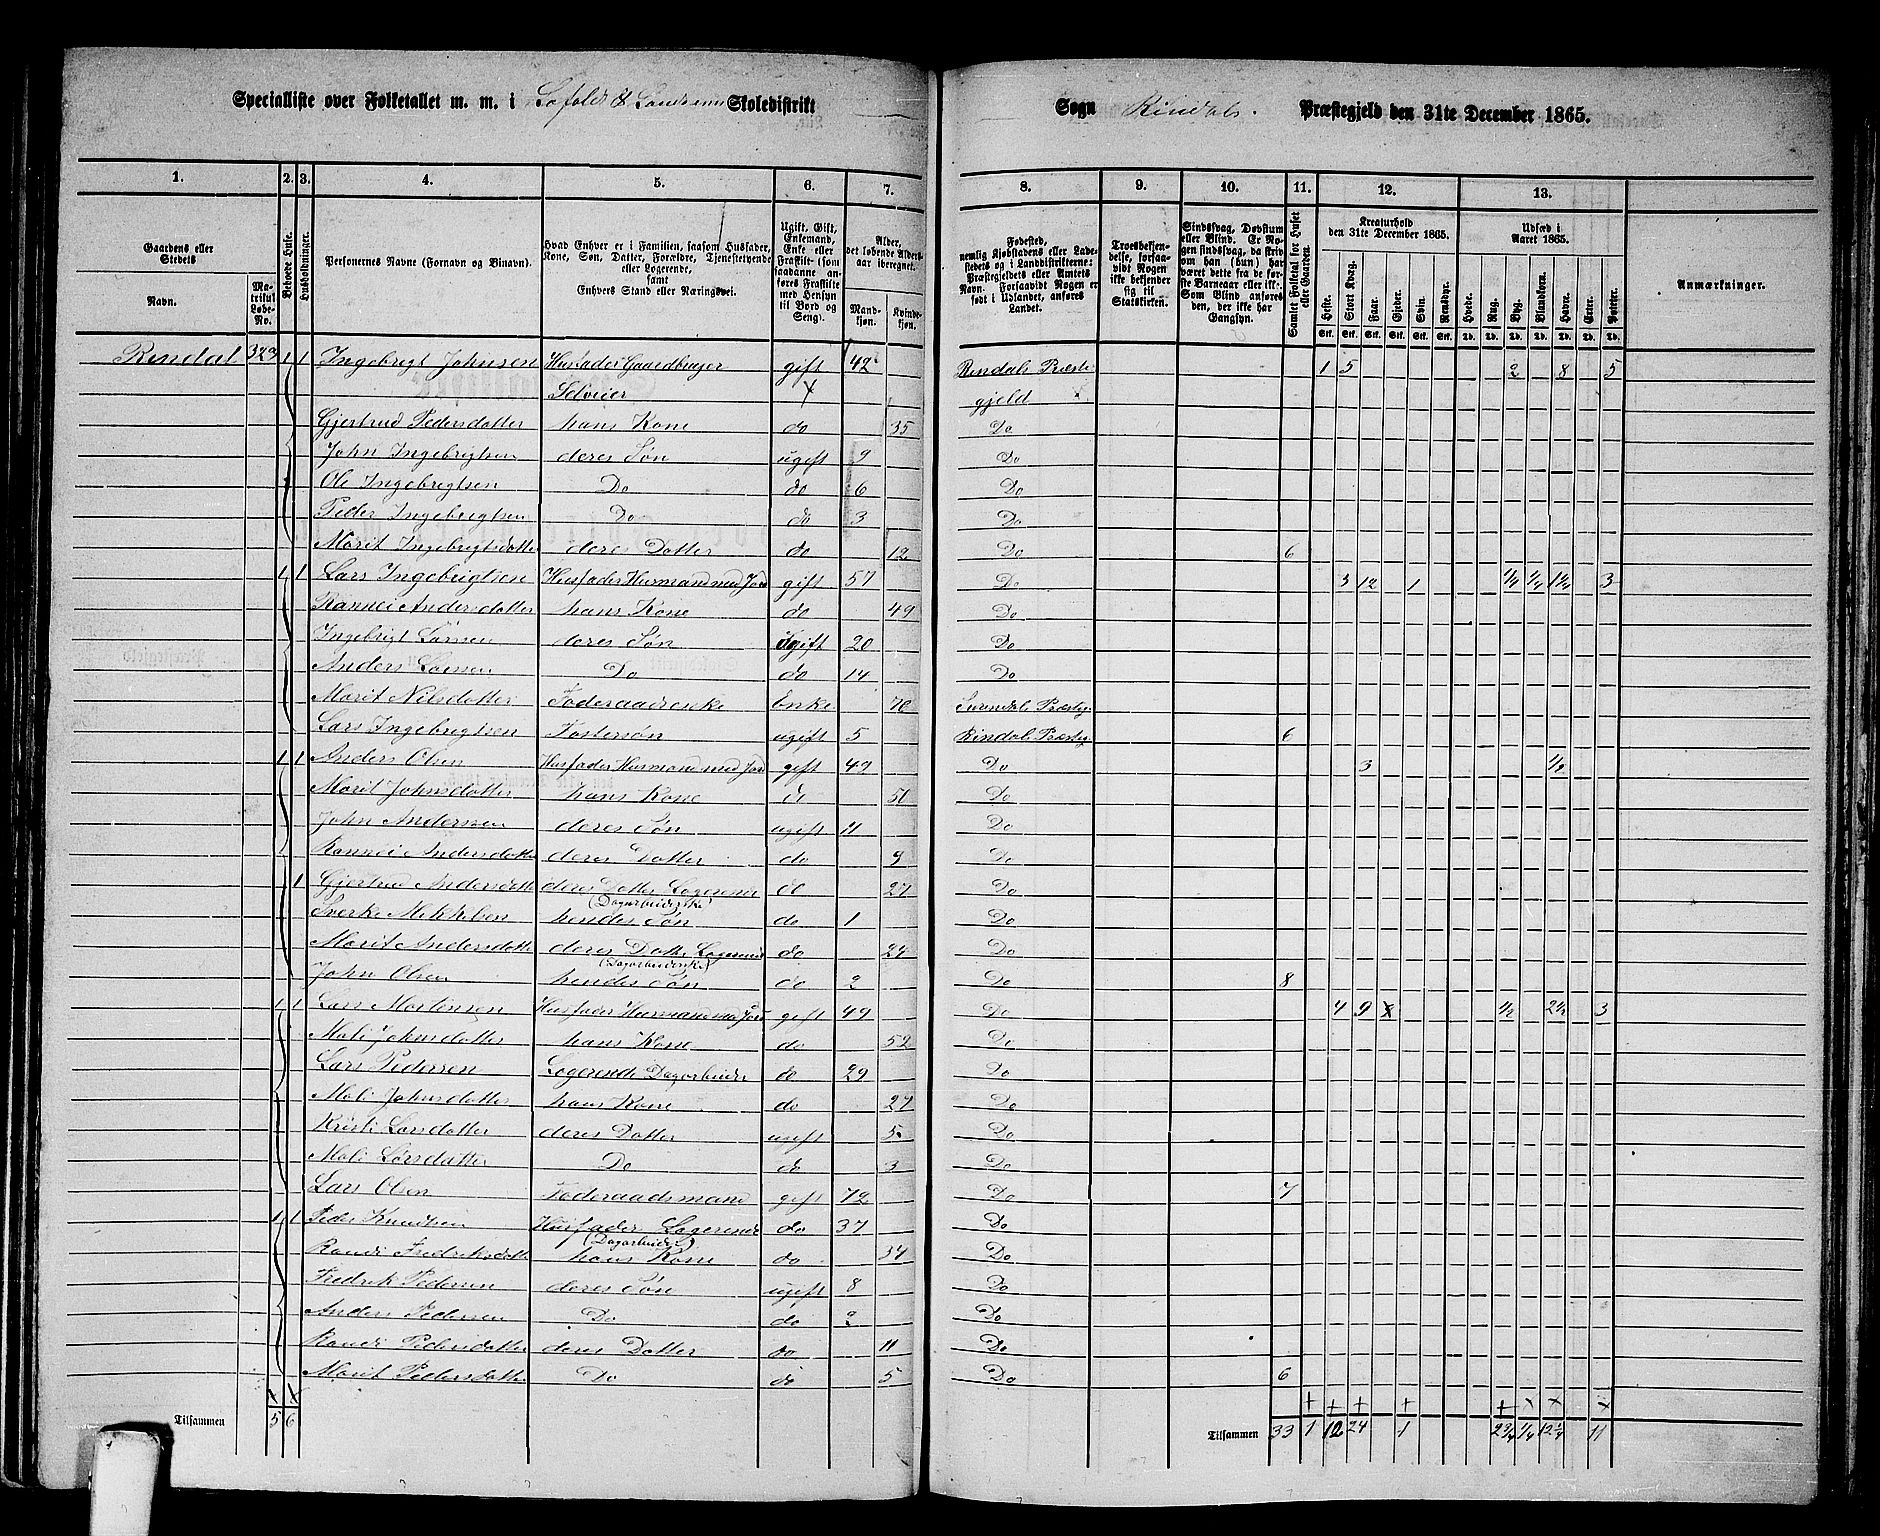 Specialliste over Folketallet m. m. i Skoledistrikt
Sogn Rindals. Præstegjeld den 31te December 1865.
1. 2. 3. 4. 5. 6. 7. 8. 9. 10. 11. 12. 13.
Gaardens eller Stedets
Navn.
Matrikul Løbe-No.
Beboede Huse.
Husholdninger.
Personernes Navne (Fornavn og Binavn).
Hvad Enhver er i Familien, saasom Husfader, Kone, Søn, Datter, Forældre, Tjenestetyende eller Logerende, samt Enhvers Stand eller Næringsvei.
Ugift, Gift, Enkemand, Enke eller Fraskilt (som saadanne anføres Fraskilte med Hensyn til Bord og Seng).
Alder, det løbende Aldersaar iberegnet.
Mandkjøn. Kvindekjøn.
Fødested, nemlig Kjøbstadens eller Ladestedets og i Landdistrikterne: Præstegjeldets eller Amtets Navn. Forsaavidt Nogen er født i Udlandet, anføres Landet.
Troesbekjendelse, forsaavidt Nogen ikke bekjender sig til Statskirken.
Sindssvag, Døvstum eller Blind. Er Nogen sindssvag, da skrives om han (hun) har været dette fra de første Barneaar eller ikke. Som Blind anføres den, der ikke har Gangsyn.
Samlet Folketal for Huset eller Gaarden.
Kreaturhold den 31te December 1865.
Heste. Stort Kvæg. Faar. Gjeder. Svin. Rensdyr.
Udsæd i Aaret 1865.
Hvede. Rug. Byg. Blandkorn. Havre. Erter. Poteter.
Anmærkninger.
Rindal 323 1 1 Ingebrigt Johnsen Husfader Gaardbruger gift 42 Rindals Præste 1 5 2 8 5
Selveier gjeld
Gjertrud Pedersdatter hans Kone do 35 Do
John Ingebrigtsen deres Søn ugift 9 Do
Ole Ingebrigtsen Do do 6 Do
Peder Ingebrigtsen Do do 3 Do
Marit Ingebrigtsdatter deres Datter do 12 Do 6
1 1 Lars Ingebrigtsen Husfader Husmand med Jord gift 57 Do 3 12 1 1/4 1/4 1 3/4 3
Rannei Andersdatter hans Kone do 49 Do
Ingebrigt Larsen deres Søn ugift 20 Do
Anders Larsen Do do 14 Do
Marit Nilsdatter Føderaadsenke Enke 70 Surendals Præstg
Lars Ingebrigtsen Fostersøn ugift 5 Rindals Præstg 6
1 1 Anders Olsen Husfader Husmand med Jord gift 47 Do 3 1/2
Marit Johnsdatter hans Kone do 50 Do
John Andersen deres Søn ugift 11 Do
Rannei Andersdatter deres Datter do 9 Do
1 Gjertrud Andersdatter deres Datter Logerende do 27 Do
(Dagarbeiderske)
Sverke Mikkelsen hendes Søn do 1 Do
Marit Andersdatter deres Datter Logerende do 24 Do
(Dagarbeiderske)
John Olsen hendes Søn do 2 Do 8
1 1 Lars Mortensen Husfader Husmand med Jord gift 49 Do 4 9 1/2 2 1/2 3
Mali Johnsdatter hans Kone do 52 Do
Lars Pedersen Logerende Dagarbeider do 29 Do
Mali Johnsdatter hans Kone do 27 Do
Kristi Larsdatter deres Datter ugift 5 Do
Mali Larsdatter Do do 3 Do
Lars Olsen Føderaadsmand gift 72 Do 7
1 1 Peder Knudsen Husfader Logerende do 37 Do
(Dagarbeider)
Randi Fredriksdatter hans Kone do 34 Do
Fredrik Pedersen deres Søn ugift 8 Do
Anders Pedersen Do do 2 Do
Randi Pedersdatter deres Datter do 11 Do
Marit Pedersdatter Do do 5 Do 6
Tilsammen 5 6 Tilsammen 33 1 12 24 1 2 3/4 1/4 12 1/4 11